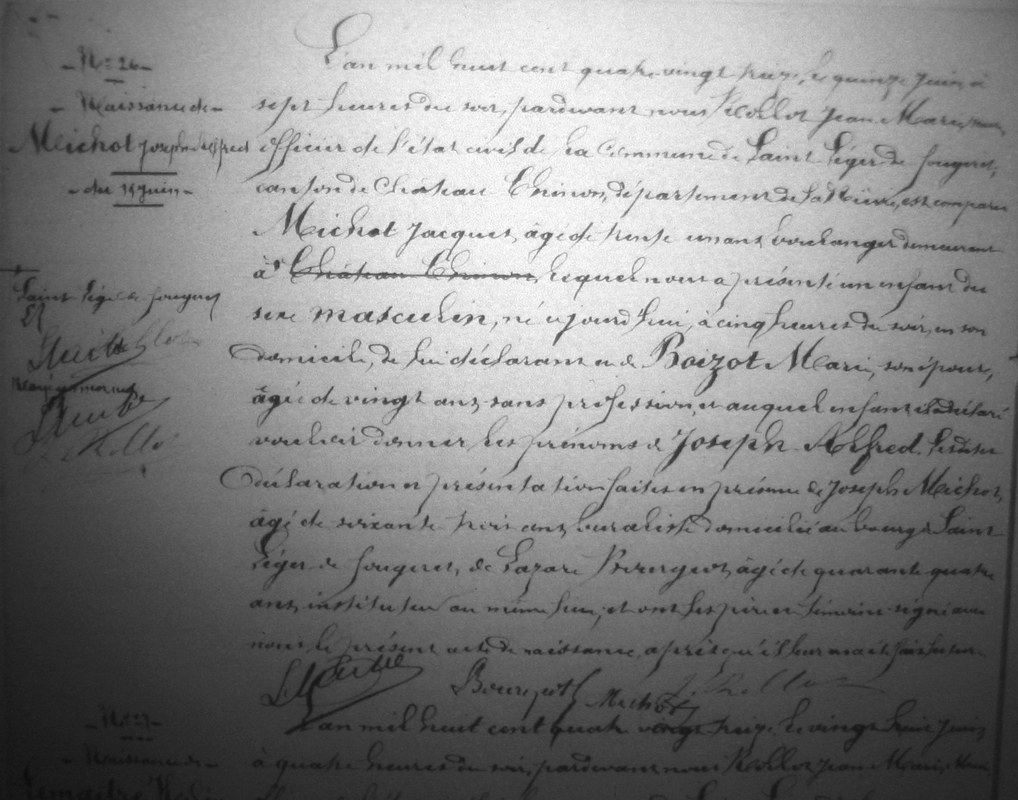 N° 26
Naissance de
Michot Joseph Alfred
du 15 Juin
L'an mil huit cent quatre vingt treize, le quinze Juin à
sept heures du soir, pardevant nous Jean Marie, maire
officier de l'état civil de la Commune de Saint Léger de Fougeret,
canton de Château Chinon, département de la Nièvre, est comparu
Michot Jacques, âgé de trente un ans, boulanger demeurant
à Château Chinon, lequel nous a présenté un enfant du
Saint Léger de Fougeret
sexe masculin, né aujourd'hui, à cinq heures du soir, en son
domicile, de lui déclarant et de Boizot Marie, son épouse,
âgée de vingt ans, sans profession, et auquel enfant il a déclaré
vouloir donner les prénoms de Joseph Alfred. Lesdites
déclaration et présentation faites en présence de Joseph Michot,
âgé de soixante trois ans, buraliste domicilié au bourg de Saint
Léger de Fougeret, de Lazare Bourgeot, âgé de quarante quatre
ans, instituteur au même lieu, et ont les père et témoins signé avec
nous le présent acte de naissance, après qu'il leur en a été fait lecture.
Bourgeot Michot
N° 27
Naissance de
L'an mil huit cent quatre vingt treize, le vingt huit Juin
à quatre heures du soir, pardevant nous Jean Marie, Maire